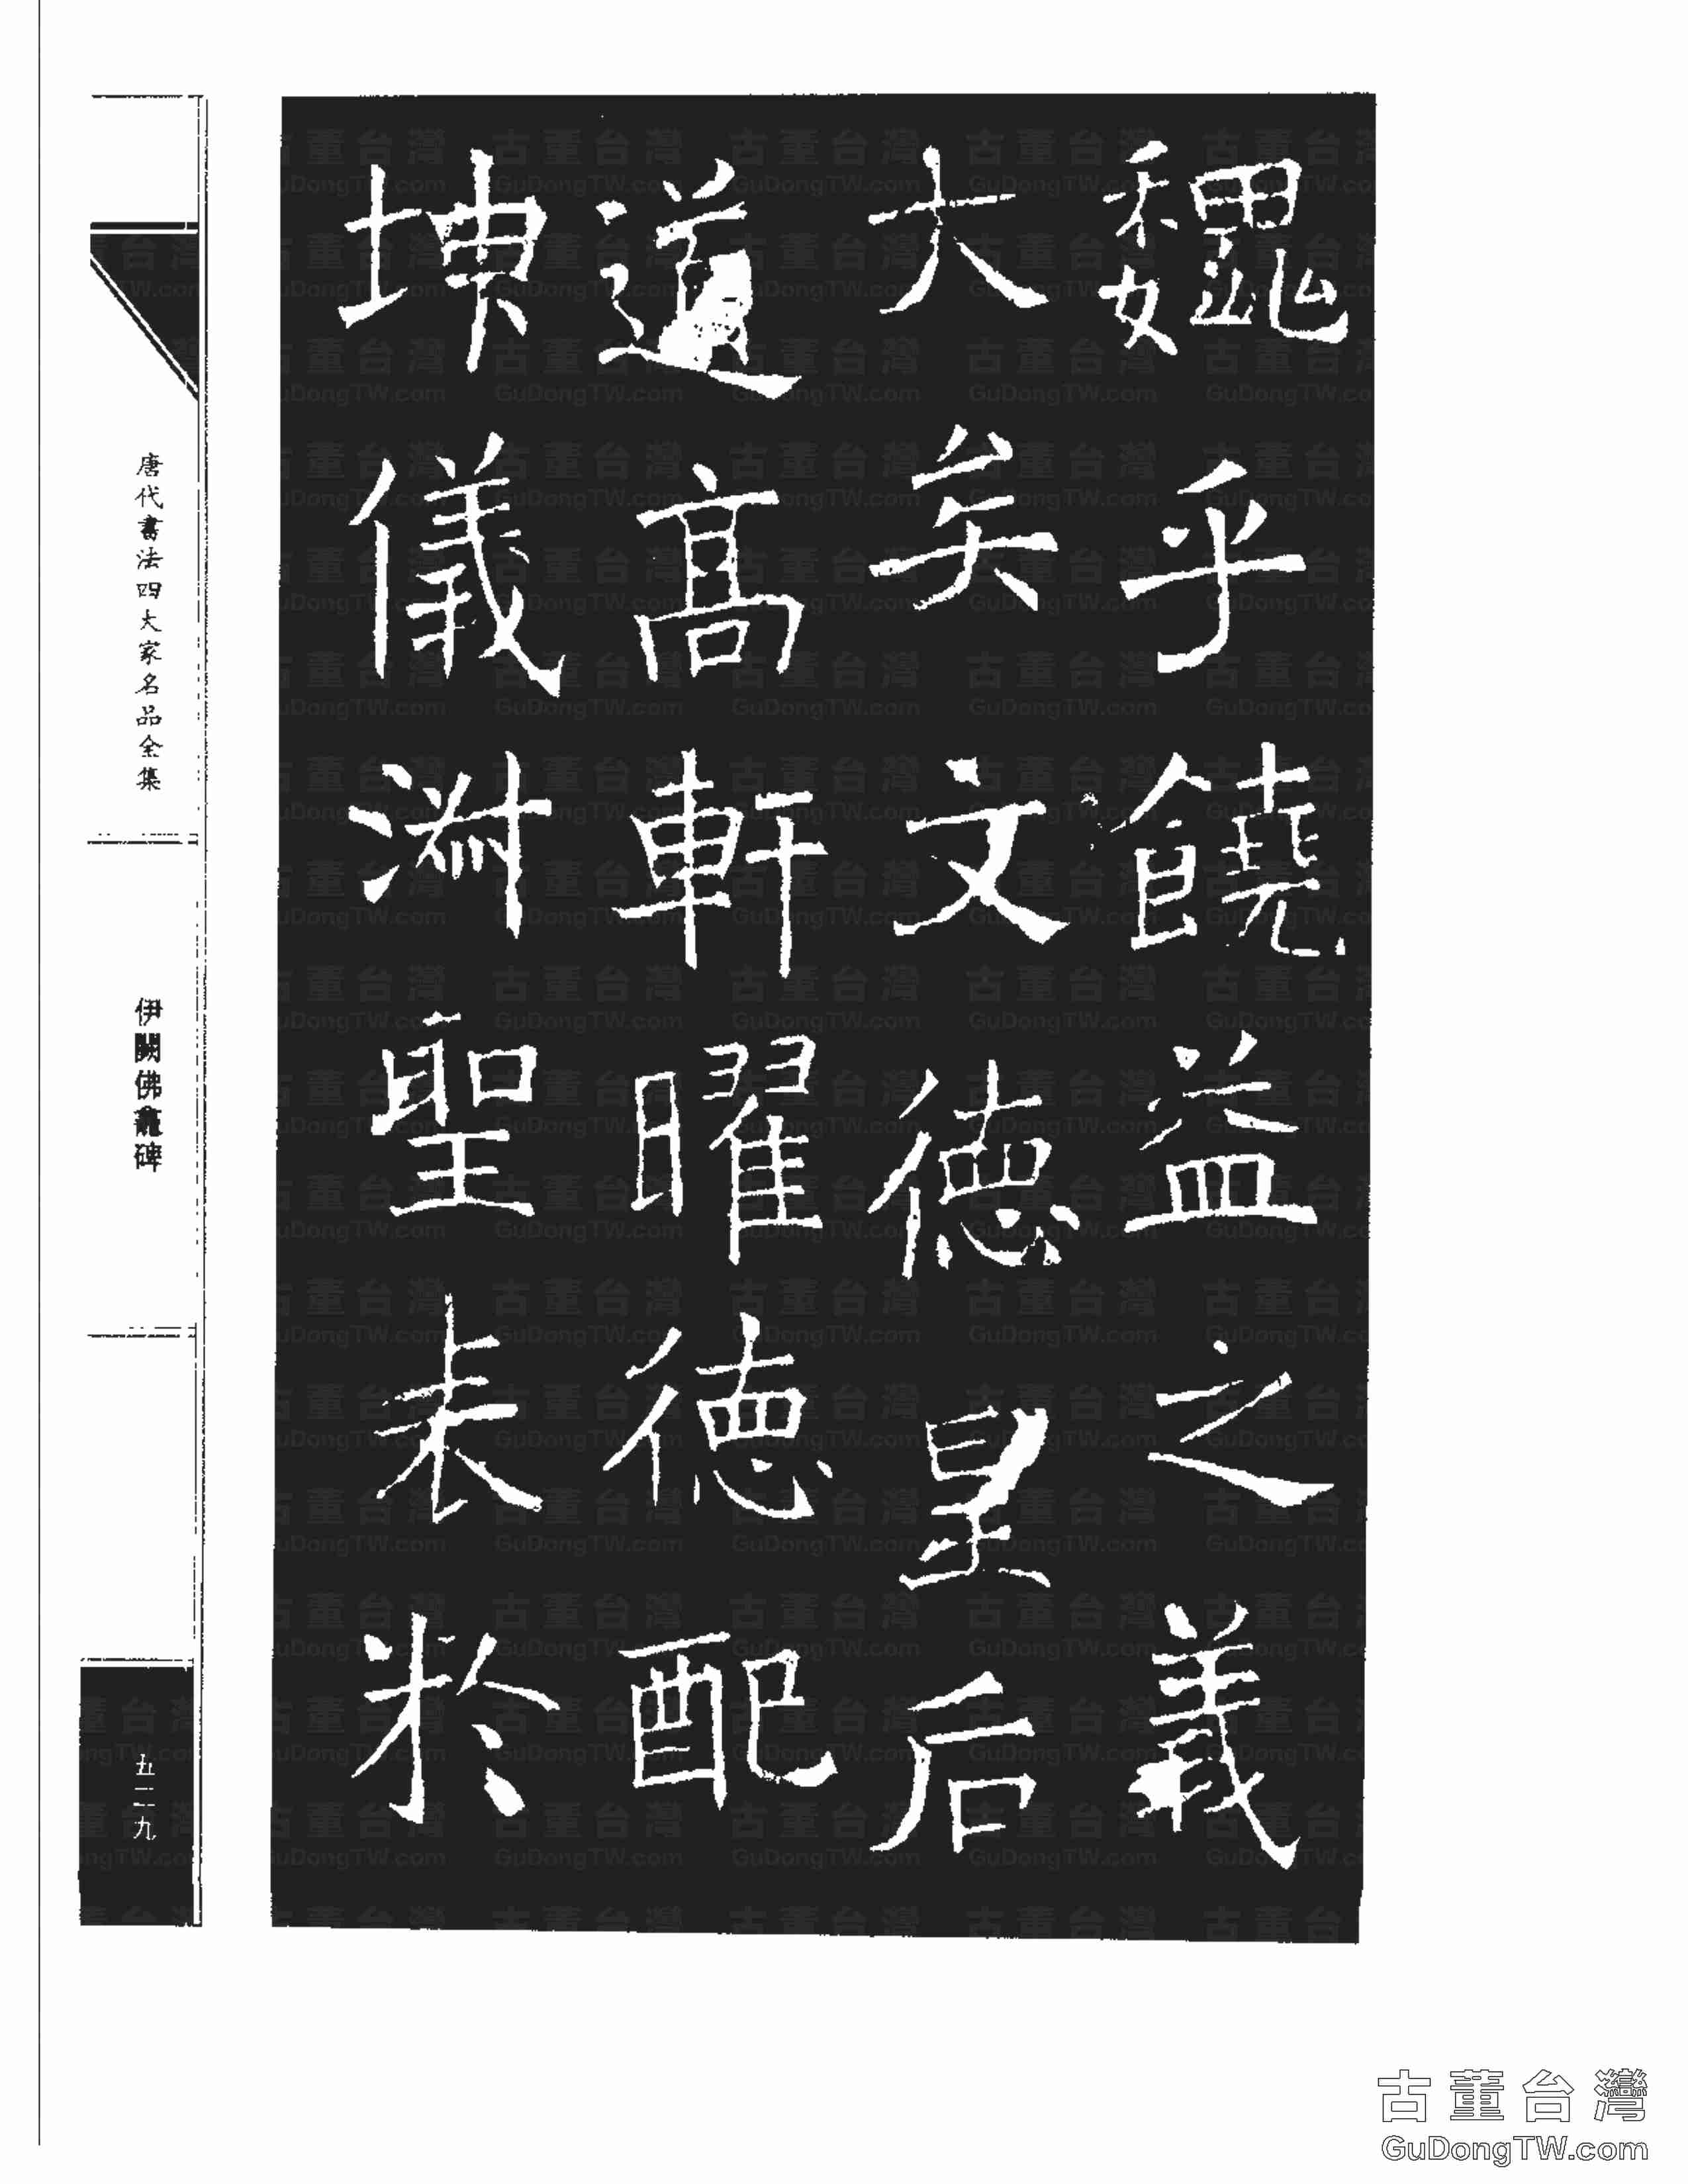 魏乎饒益之義
大矣文德皇后
道高軒曜德配
坤儀淑聖表於
唐代書法四大家名品全集
伊闕佛龕碑
古董台灣
GuDongTW.com